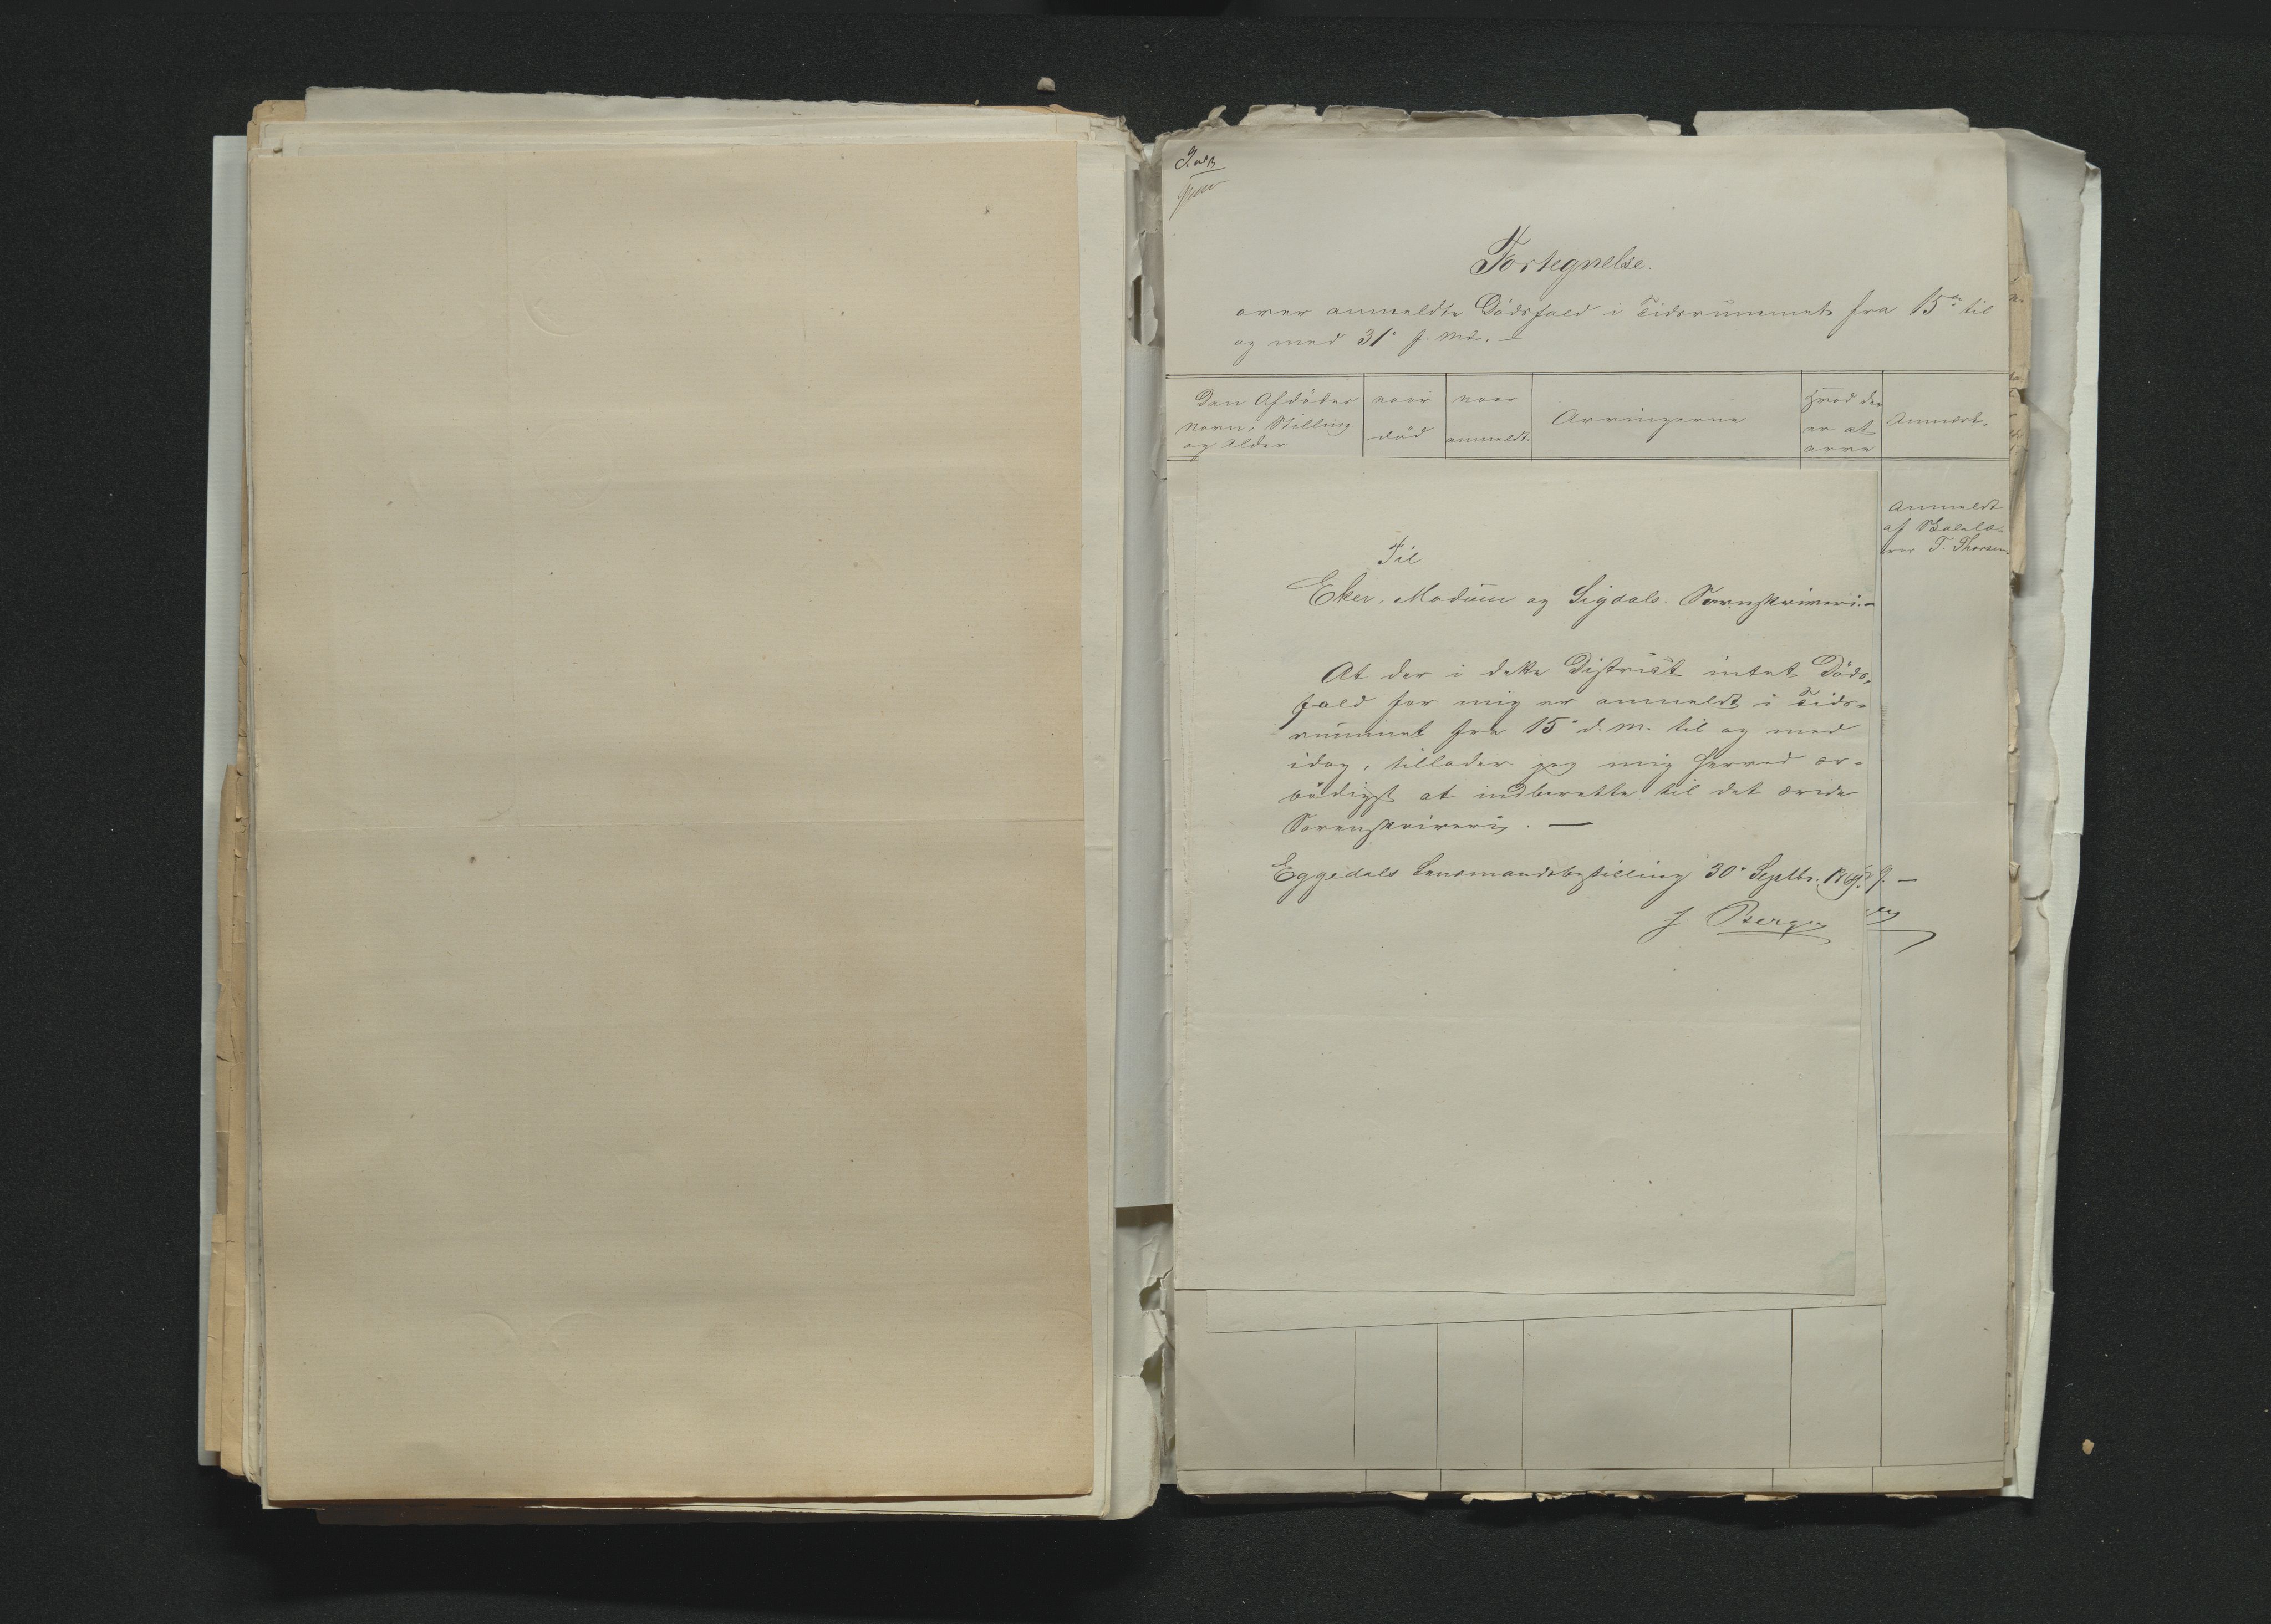 Fortegnelse.
over anmeldte Dödsfald i Tidsrummet fra 15de til
og med 31' f. Md. —
Den Afdödes
Navn, Stilling
og Alder
naar
död
naar
anmeldt
Arvingerne
Hvad der
er at
arve
Anmærk.
Anmeldt
af Skolelæ-
rer T. Thorsen
Til
Eker, Modum og Sigdals Sorenskriveri. —
At der i dette District intet Döds-
fald for mig er anmeldt i Tids-
rummet fra 15' d. M. til og med
idag, tillader jeg mig herved ær-
bödigst at indberette til det ærede
Sorenskriveri. —
Eggedals Lensmandsbestilling 30' Septbr. 1869. —
J Bergen